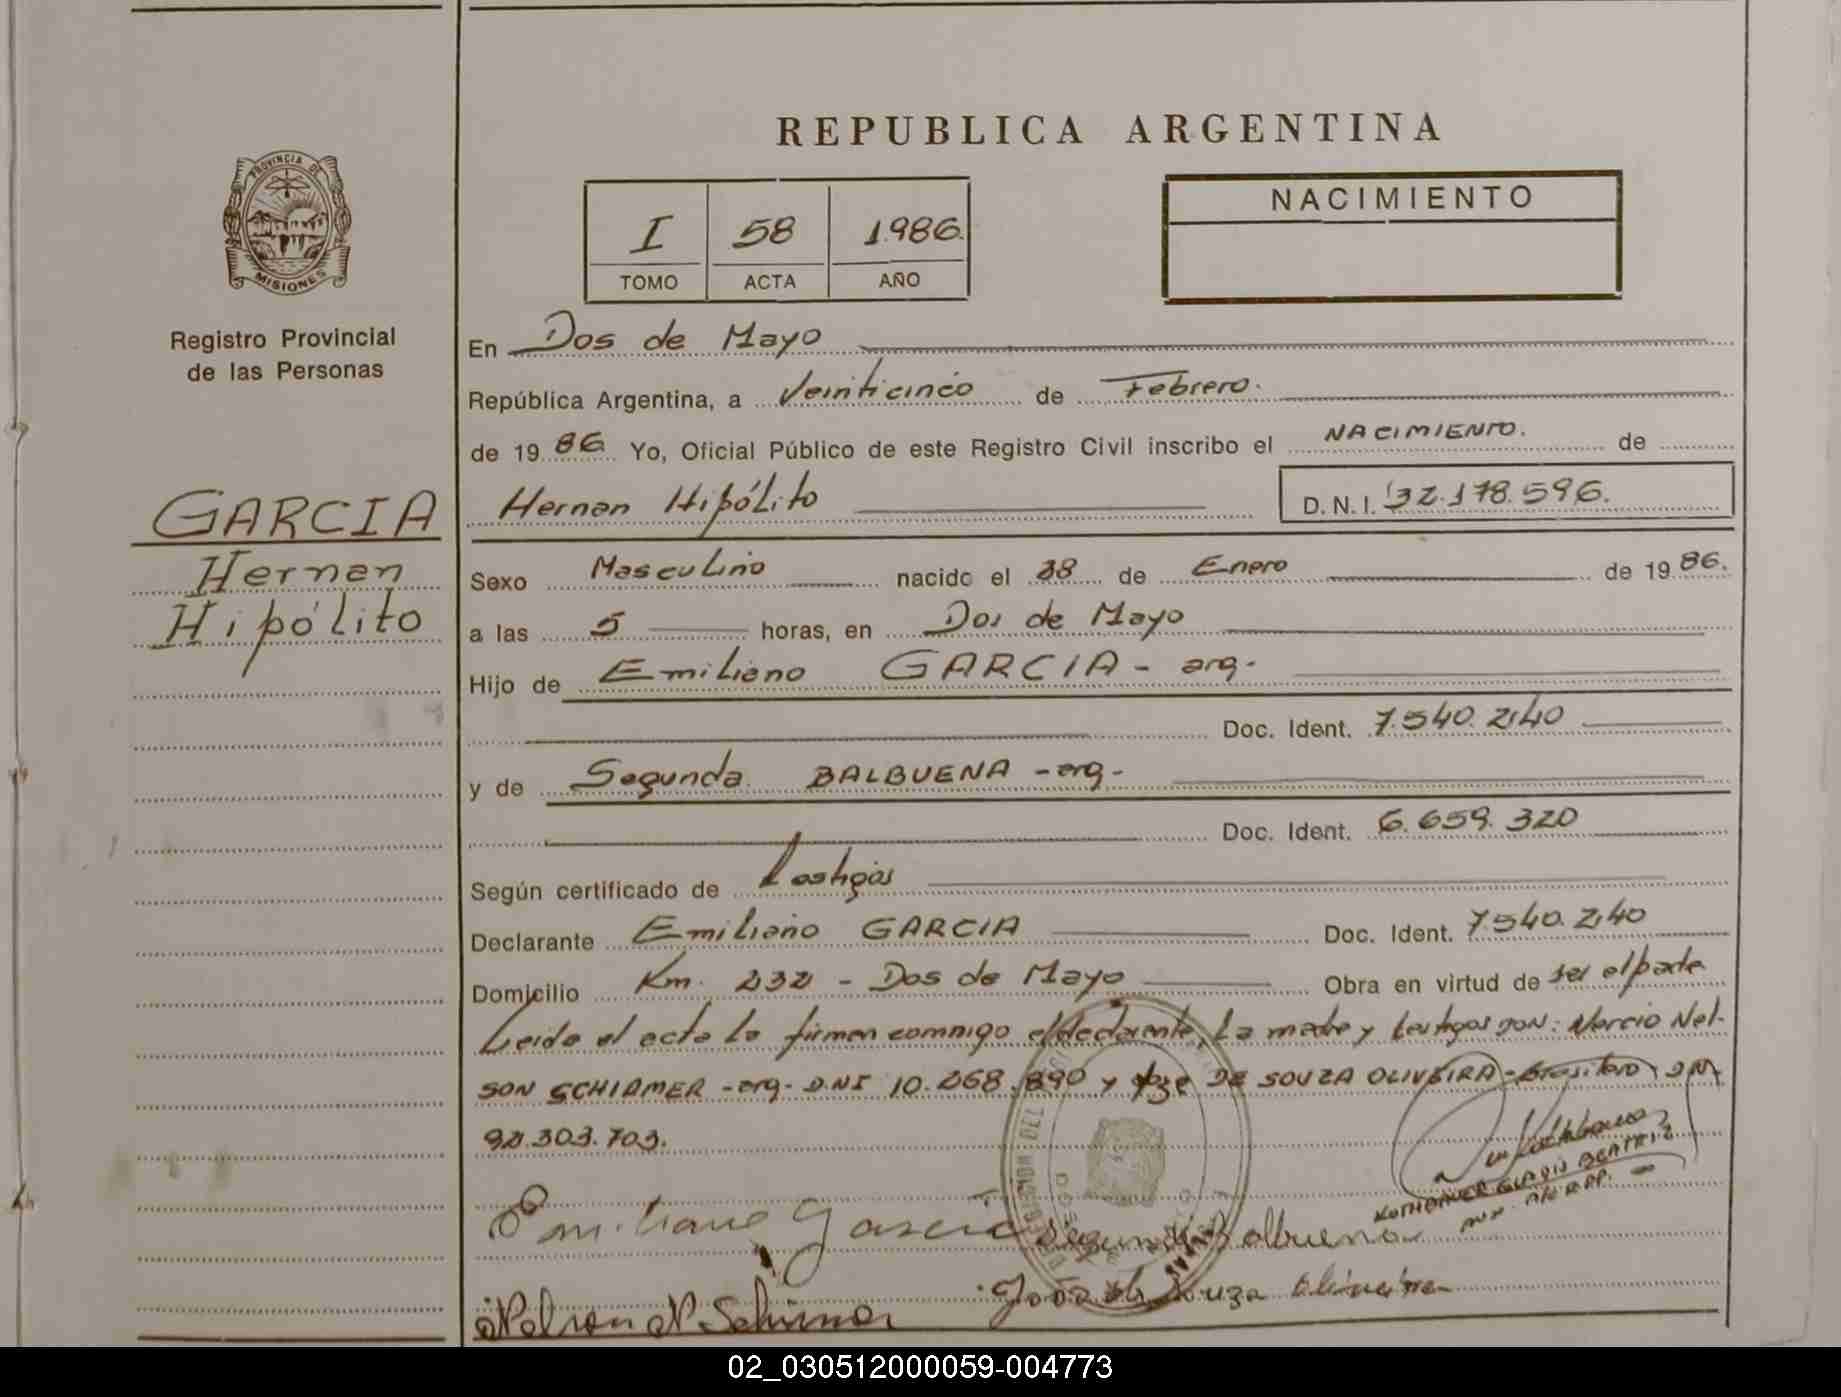 REPUBLICA ARGENTINA
PROVINCIA DE
MISIONES
Registro Provincial
de las Personas
I 58 1986.
TOMO ACTA AÑO
NACIMIENTO
GARCIA
Hernan
Hipólito
En Dos de Mayo
República Argentina, a Veinticinco de Febrero.
de 1986 Yo, Oficial Público de este Registro Civil inscribo el NACIMIENTO. de
Hernan Hipólito D. N. I. 32.178.596.
Sexo Masculino nacido el de Enero de 1986.
a las 5 horas, en Dos de Mayo
Hijo de Emiliano GARCIA - arg.
Doc. Ident. 7.540.240
y de Segunda BALBUENA - arg-
Doc. Ident. 6.659.320
Según certificado de
Declarante Emiliano GARCIA Doc. Ident. 7.540.240
Domicilio Km. 232 - Dos de Mayo Obra en virtud de ser el padre
Leida el acta la firman conmigo el declarante, la madre y testigos son: Narcio Nel-
SON SCHIRMER - arg - D.N.I 10.268.890 y DE SOUZA OLIVEIRA - Brasilero
92.303.703.
Emiliano Garcia Segunda Balbuena
Nelson N. Schirmer de Souza Oliveira
02_030512000059-004773